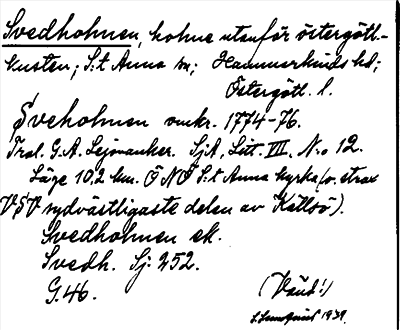 Svedholmen, holme utanför östergötl.-
kusten; S:t Anna sn; Hammarkinds hd;
Östergötl. l.
Sveholmen omkr. 1774-76.
Tral. G. A. Lejonanker. SjA, Litt. VII, N:o 12.
Läge 10,2 km. ÖNÖ S:t Anna kyrka (o. strax
VSV sydvästligaste delen av Källsö).
Svedholmen ek.
Svedh. Sj: 252.
G. 46.
(Vänd!)
1939.